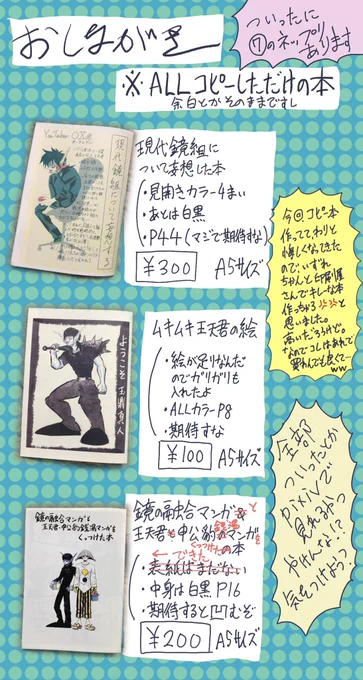 おしながき
ついったに
⑦のネップリ
あります
※ALLコピーしただけの本
余白とかそのままですし
現代鏡組に
ついて妄想した本
・見開きカラー4まい
・あとは白黒
・P44(マジで期待すな)
¥300 A5サイズ
今回コピー本
作っててわりと
悔しくなってきた
ので、いずれ
ちゃんと印刷屋
さんでキレーな本
作っちゃろ
と
思いました。
高いだろうけど。
なのでコレはあれで
買わんでも良くてー
ww
ようこそ
ムキムキ王天君の絵
・絵が足りなんだ
のでガリガリも
入れたよ
・ALLカラーP8
・期待すな
¥100 A5サイズ
全部
ついったとか
pixivで
見れるやつ
やけんな!?
気をつけよう?
鏡の融合マンガと
王天君・申公豹マンガを
くっつけた本
鏡の融合マンガと
王天君と申公豹マンガを
くっつけたの本
←できた
・表紙はまだない
・中身は白黒P16
・期待すると凹むぞ
¥200 A5サイズ